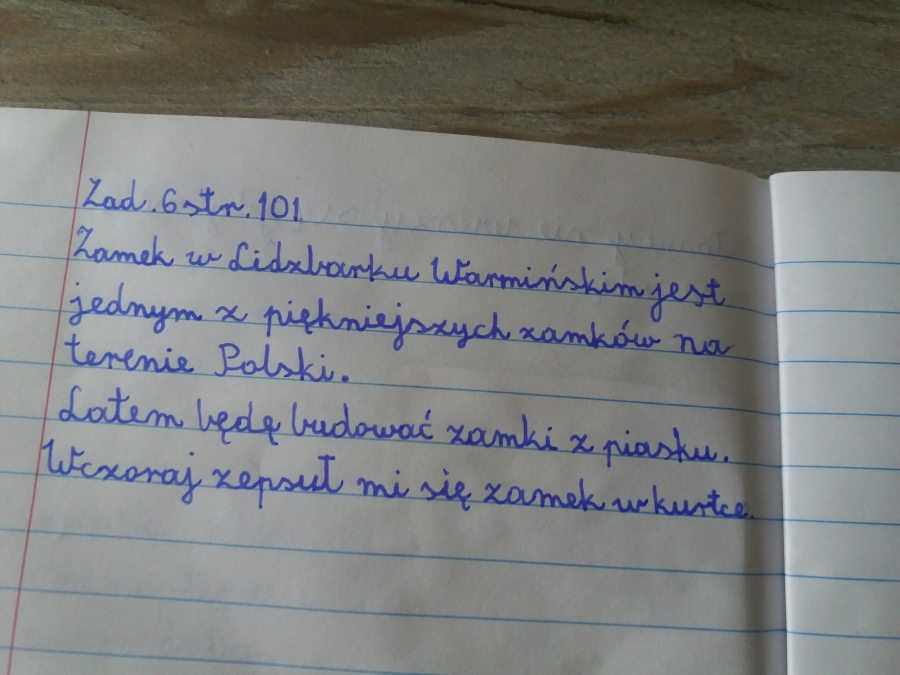 Zad. 6 str. 101
Zamek w Lidzbarku Warmińskim jest
jednym z piękniejszych zamków na
terenie Polski.
Latem będę budować zamki z piasku.
Wczoraj zepsuł mi się zamek w kurtce.